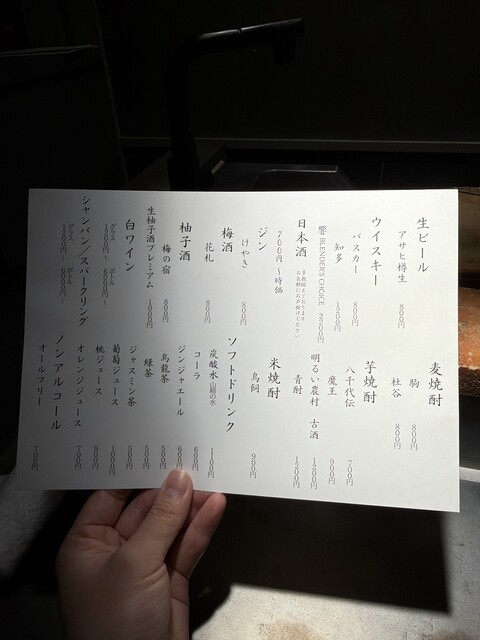 生ビール
アサヒ樽生 800円
ウイスキー
バスカー 800円
知多 1200円
響 BLENDER'S CHOICE 2500円
日本酒
700円〜時価
多数揃えております
お気軽にお声掛けください
ジン
けやき 800円
梅酒
花札 800円
柚子酒
梅の宿 800円
生柚子酒プレミアム 1000円
白ワイン
グラス 1200円〜 ボトル 6000円〜
シャンパン/スパークリング
グラス 1500円〜 ボトル 6000円〜
麦焼酎
駒 800円
杜谷 800円
芋焼酎
八千代伝 700円
魔王 900円
明るい農村 古酒 1200円
青酎 1200円
米焼酎
鳥飼 900円
ソフトドリンク
炭酸水 山崎の水 1100円
コーラ 600円
ジンジャエール 600円
烏龍茶 500円
緑茶 500円
ジャスミン茶 500円
葡萄ジュース 1000円
桃ジュース 800円
オレンジジュース 700円
ノンアルコール
オールフリー 700円